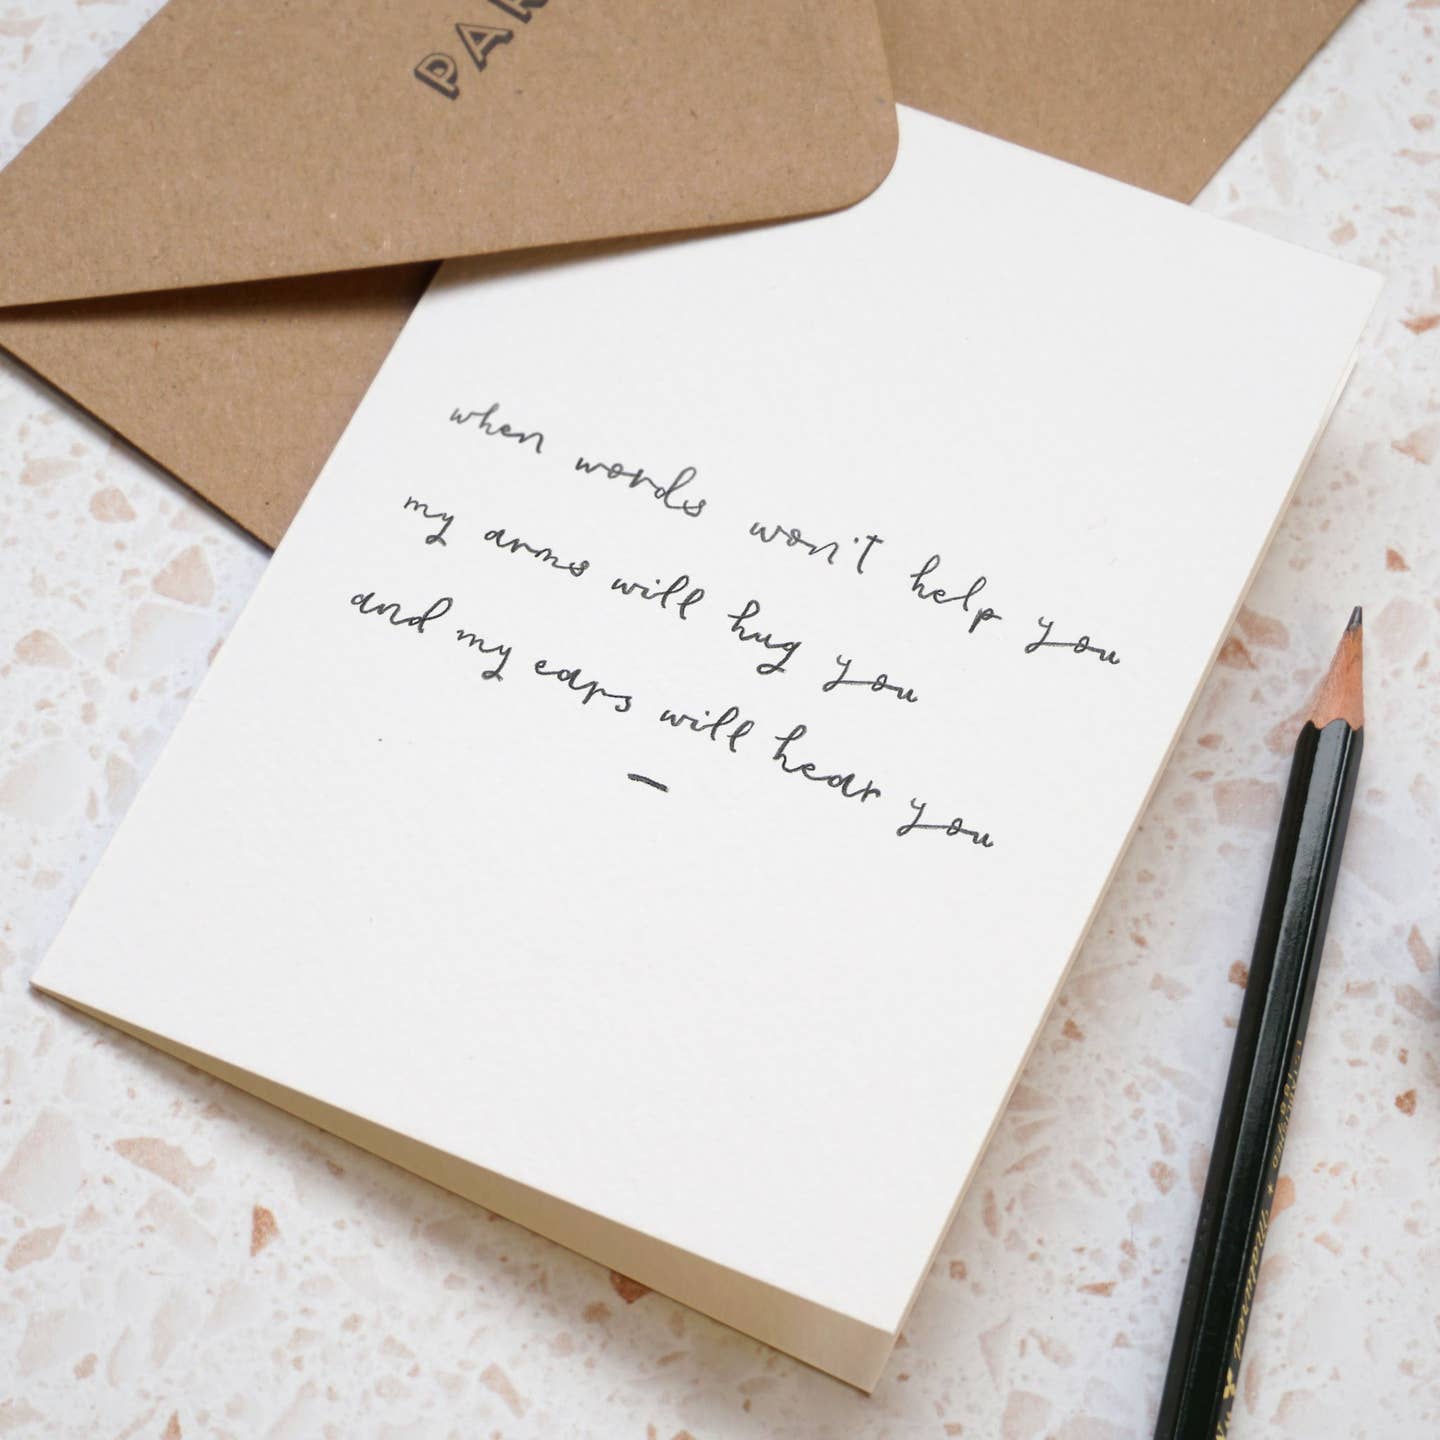 PAR
when words won't help you
my arms will hug you
and my ears will hear you